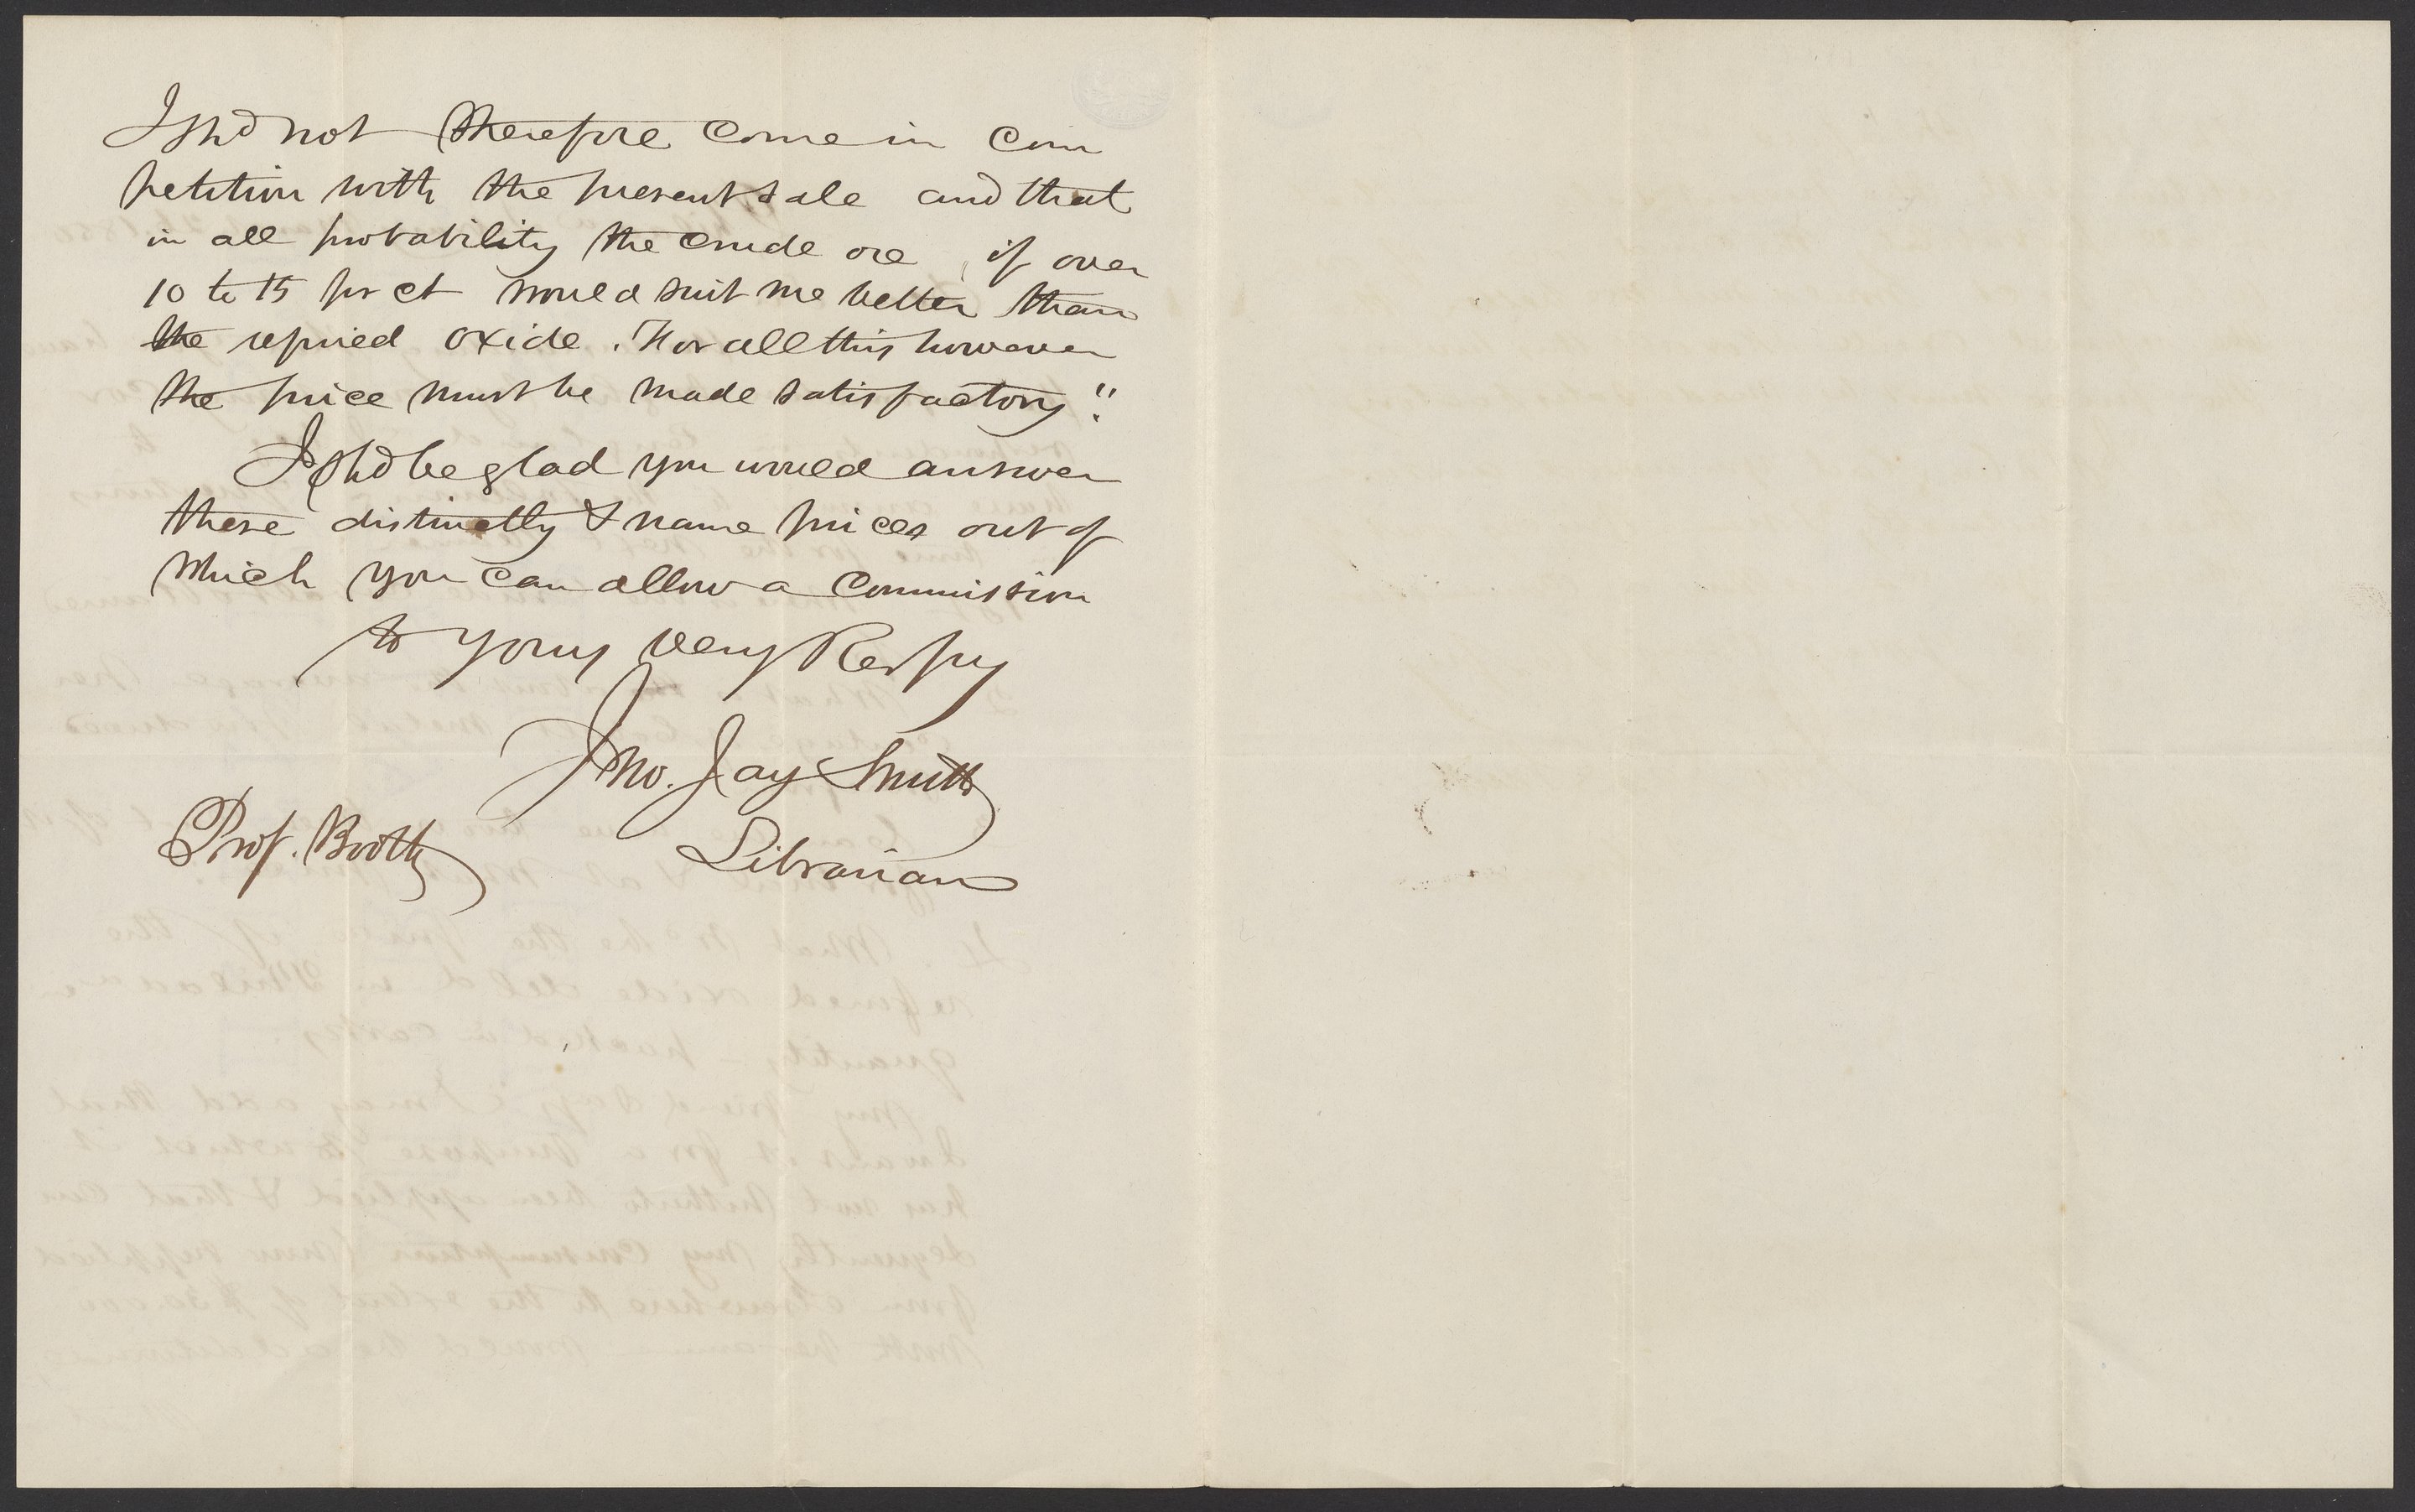 I shd not therefore come in com
petition with the present sale and that
in all probability the crude ore if over
10 to 15 pr ct would suit me better than
the refined oxide. For all this however
the price must be made satisfactory".
I shd be glad you would answer
these distinctly & name prices out of
which you can allow a commission
to yours very Respy
Jno. Jay Smith
Librarian
Prof. Booth